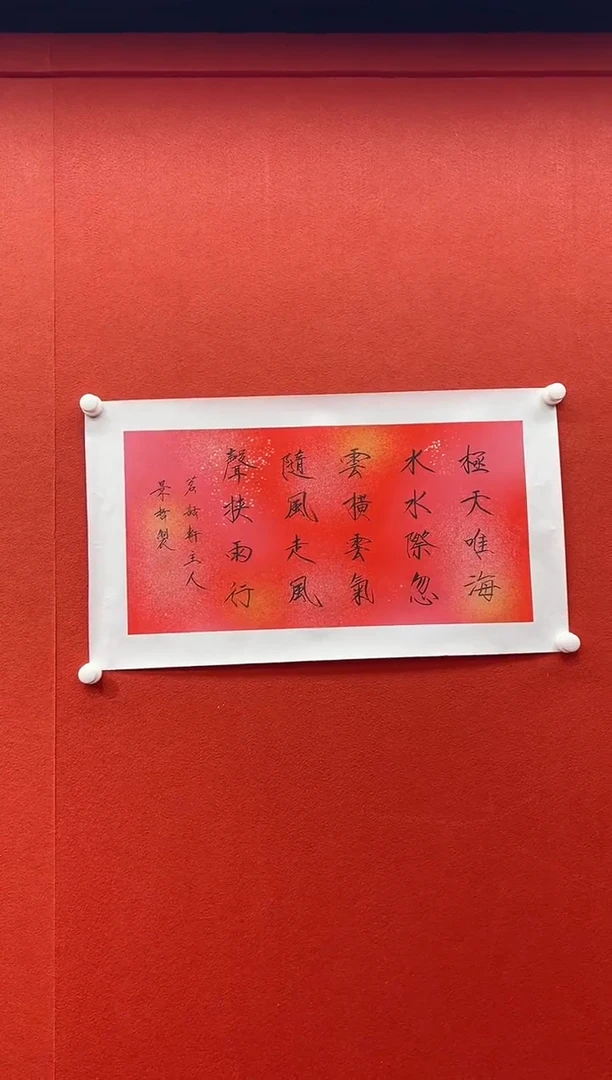 極天唯海
水水際忽
雲橫雲氣
隨風走風
聲挾雨行
詩軒主人
景哲製